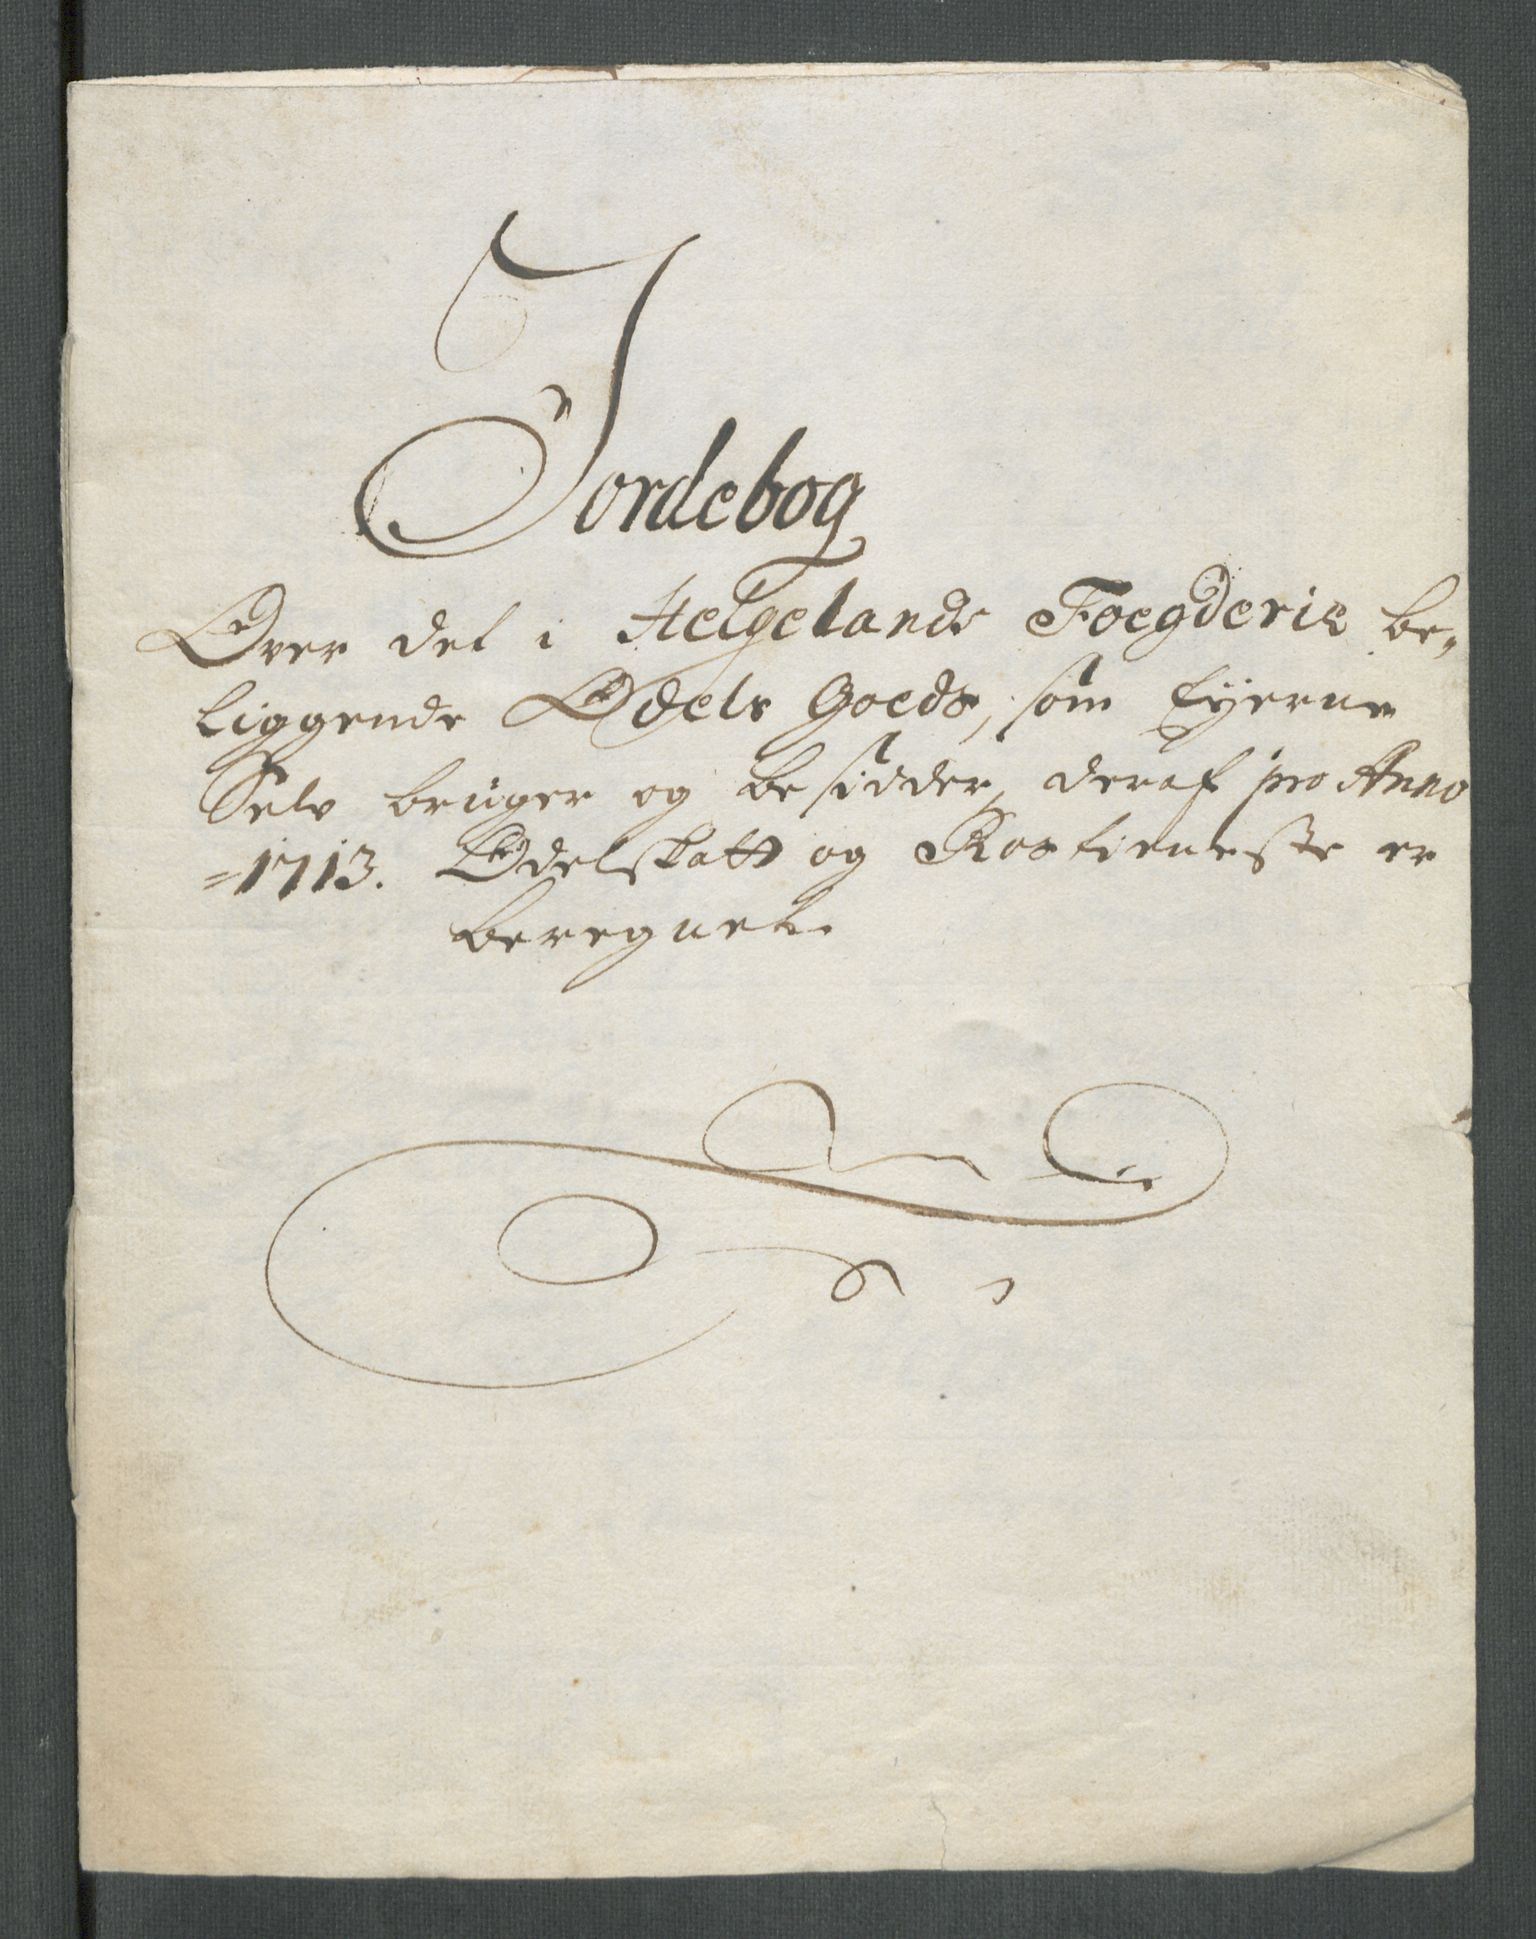 Jordebog
Over det i Helgelands Foegderie be„
liggende Odels Goeds, som Eyerne
Selv bruger og besidder, deraf pro Anno
=1713. Odelskatt og Rostieneste er
beregnet.